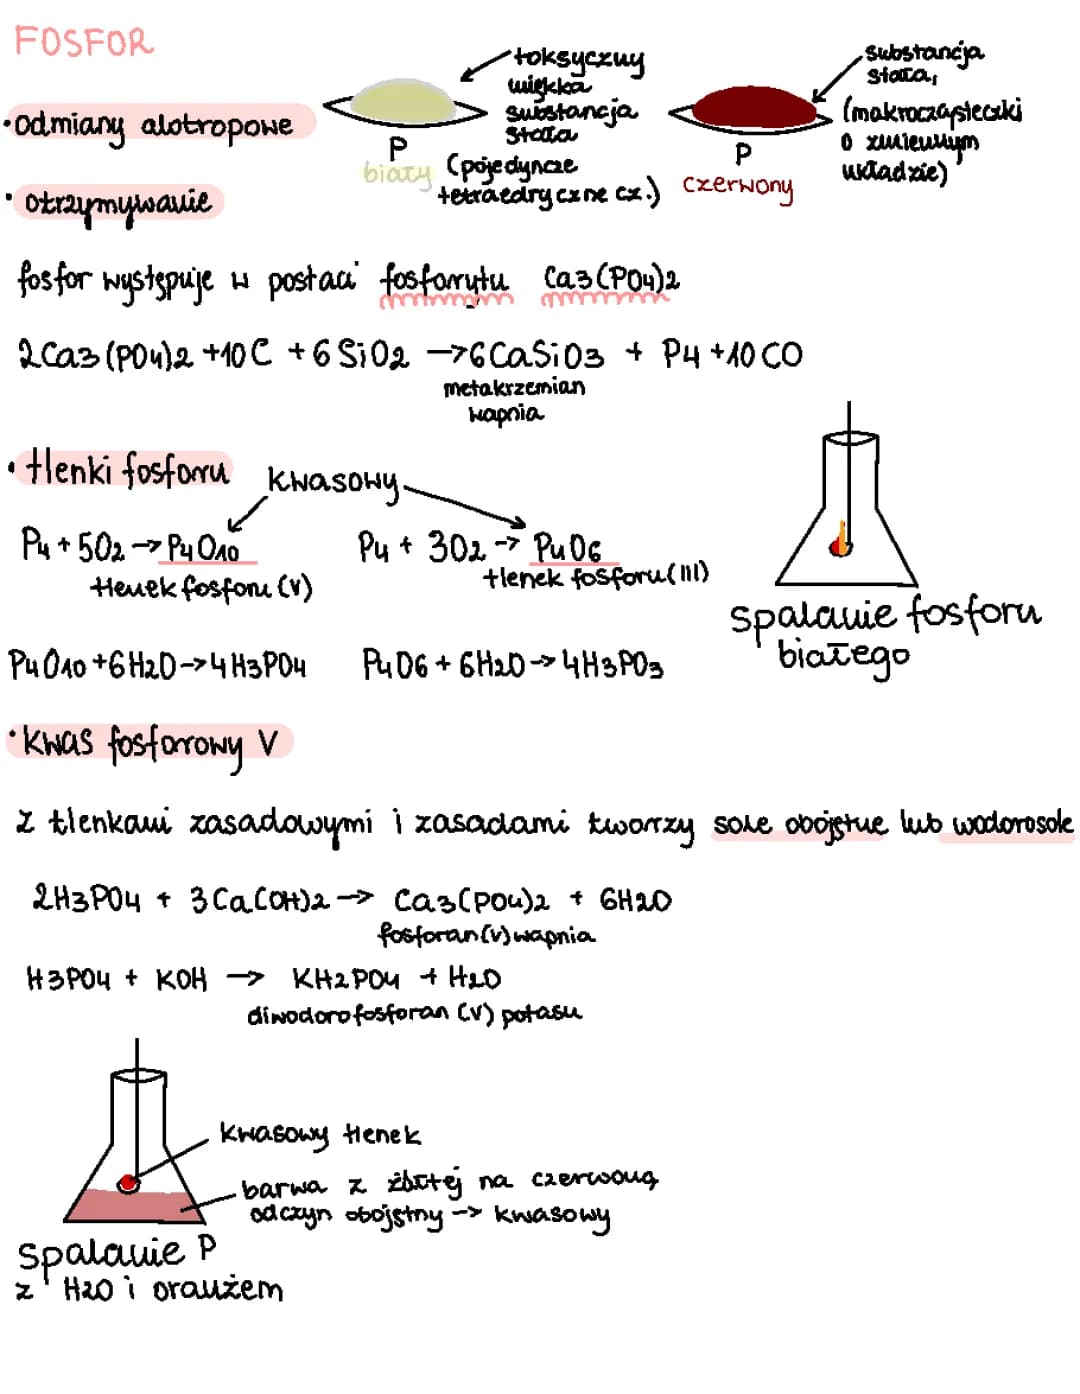 FOSFOR
•odmiany alotropowe
P
biały
toksyczny
miękka
substancja
stała
(pojedyncze
tetraedryczne cz.)
P
czerwony
substancja
stała,
(makrocząsteczki
o zmiennym
układzie)
• otrzymywanie
fosfor występuje w postaci fosforytu Ca3(PO4)2
2Ca3(PO4)2 +10C + 6SiO2 → 6CaSiO3 + P4 +10CO
metakrzemian
wapnia
• tlenki fosforu
kwasowy
P4 + 5O2 → P4O10
tlenek fosforu (V)
P4 + 3O2 → P4O6
tlenek fosforu(III)
spalanie fosforu
białego
P4O10 +6H2O→4H3PO4
P4O6 + 6H2O→ 4H3PO3
•kwas fosforowy V
z tlenkami zasadowymi i zasadami tworzy sole obojętne lub wodorosole
2H3PO4 + 3Ca(OH)2 → Ca3(PO4)2 + 6H2O
fosforan(V)wapnia
H3PO4 + KOH → KH2PO4 + H2O
diwodorofosforan (V) potasu
kwasowy tlenek
barwa z żółtej na czerwoną
odczyn obojętny → kwasowy
spalanie P
z H2O i oranżem